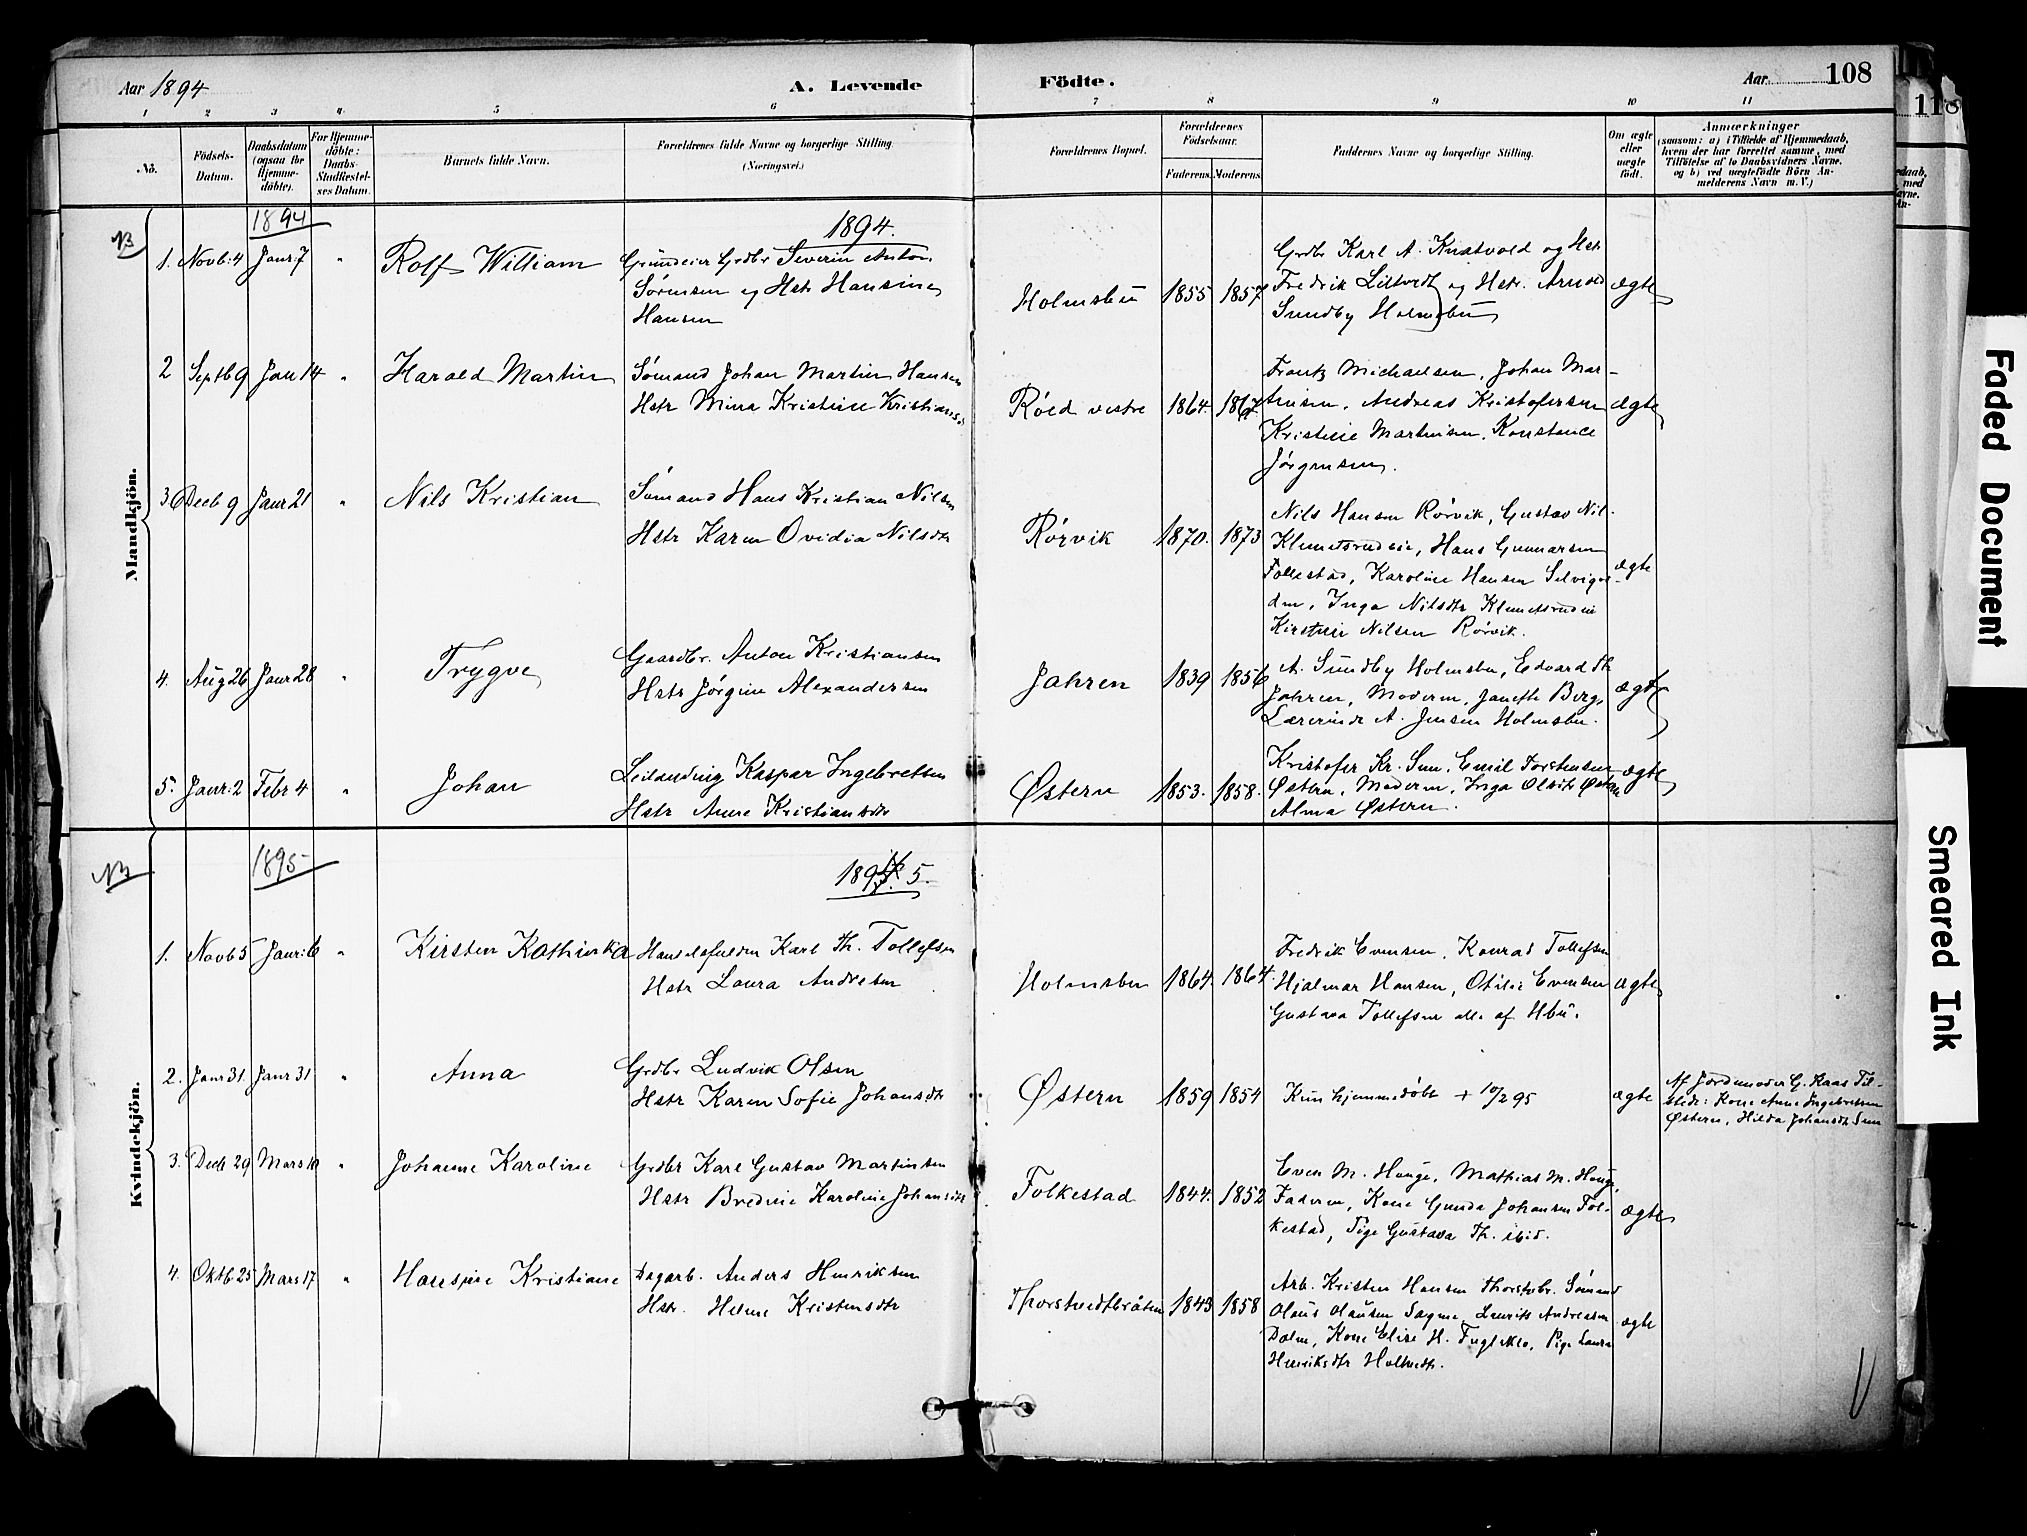 Aar 1894
A. Levende Födte.
Aar 108
118
1 2 3 4 5 6 7 8 9 10 11
No.
Födsels-Datum.
Daabsdatum (ogsaa for Hjemme-döbte).
For Hjemme-döbte: Daabs-Stadfæstelses Datum.
Barnets fulde Navn.
Forældrenes fulde Navne og borgerlige Stilling. (Næringsvei.)
Forældrenes Bopæl.
Forældrenes Födselsaar.
Faderens. Moderens.
Faddernes Navne og borgerlige Stilling.
Om ægte eller uægte födt.
Anmærkninger
(saasom: a) i Tilfælde af Hjemmedaab, hvem der har forrettet samme, med Tilföielse af to Daabsvidners Navne. og b) ved uægtefödte Börn Anmelderens Navn m. V.)
Mandkjön.
NB 1894 1894.
1. Novb: 4 Janr: 7 " Rolf William
Grundeier Grdbr Severin Anton
Sørensen og Hstr Hansine
Hansen
Holmsbu 1855 1857
Grdbr Karl A. Knatvold og Hstr.
Fredrik og Hstr. Arnold
Sundby Holmsbu
ægte
2 Septb 9 Janr 14 " Harald Martin
Sømand Johan Martin Hansen
Hstr Mina Kristine
Røed vestre 1864. 1867.
Frantz Michaelsen, Johan Mar-
tinsen, Andreas Kristofersen
Kristine Martinsen, Konstance
Jörgensen.
ægte
3 Decb 9 Janr 21 " Nils Kristian
Sømand Hans Kristian Nilsen
Hstr Karen Ovidia Nilsdtr
Rørvik 1870. 1873
Nils Hansen Rørvik, Gustav Nil-
Klemetsrudeie, Hans Gunnarsen
Follestad, Karoline Hansen Selvig-
den, Inga Nilsdtr Klemetsrudeie
Kirstine Nilsen Rørvik.
ægte
4. Aug 26 Janr 28 " Trygve
Gaardbr. Anton Kristiansen
Hstr Jørgine Alexandersen
Jahren 1839 1856
A. Sundby Holmsbu, Edvard Th.
Jahren, Moderen, Janette Berg,
Lærerinde A. Jensen Holmsbu.
ægte
5. Janr: 2 Febr 4 " Johan
Leilænding Kaspar Ingebretsen
Hstr Anne Kristiansdtr
Østern 1853. 1858.
Kristofer Kr. Sun, Emil Torstensen
Østern, Moderen, Inga Olsdtr Østern
Alma Østern.
ægte
Kvindekjön.
NB 1895 1895.
1. Novb 5 Janr: 6 " Kirsten Kathinka
Handelsfuldm Karl Th. Tollefsen
Hstr Laura Andresen
Holmsbu 1864. 1864.
Fredrik Evensen, Konrad Tollefsen
Hjalmar Hansen, Otilie Evensen
Gustava Tollefsen alle af Hbu.
ægte
2. Janr 31. Janr 31 " Anna
Grdbr Ludvik Olsen
Hstr Karen Sofie Johansdtr
Østern 1859 1854
Kun hjemmedøbt + 10/2 95
ægte
Af Jordemoder G. Kaas Til-
stede: Kone Anne Ingebretsen
Østern, Hilda Johansdtr Sun
3. Decb 29 Mars 10 " Johanne Karoline
Grdbr Karl Gustav Martinsen
Hstr Bredine Karoline Johansdtr
Folkestad 1844. 1852
Even M. Houge, Mathias M. Houge,
Faderen, Kone Gunda Johansen Fol-
kestad, Pige Gustava Th. ibid.
ægte
4. Oktb. 25 Mars 17 " Hansine Kristiane
Dagarb. Anders Henriksen
Hstr. Helene Kristensdtr
Thorstvedtbråten 1843 1858
Arb. Kristen Hansen Thorstvbr. Sømand
Olaus Olausen Sagene, Laurits Andreasen
Dalen, Kone Elise H. Pige Laura
Henriksdtr Holtvedt.
ægte
Faded Document
Smeared Ink